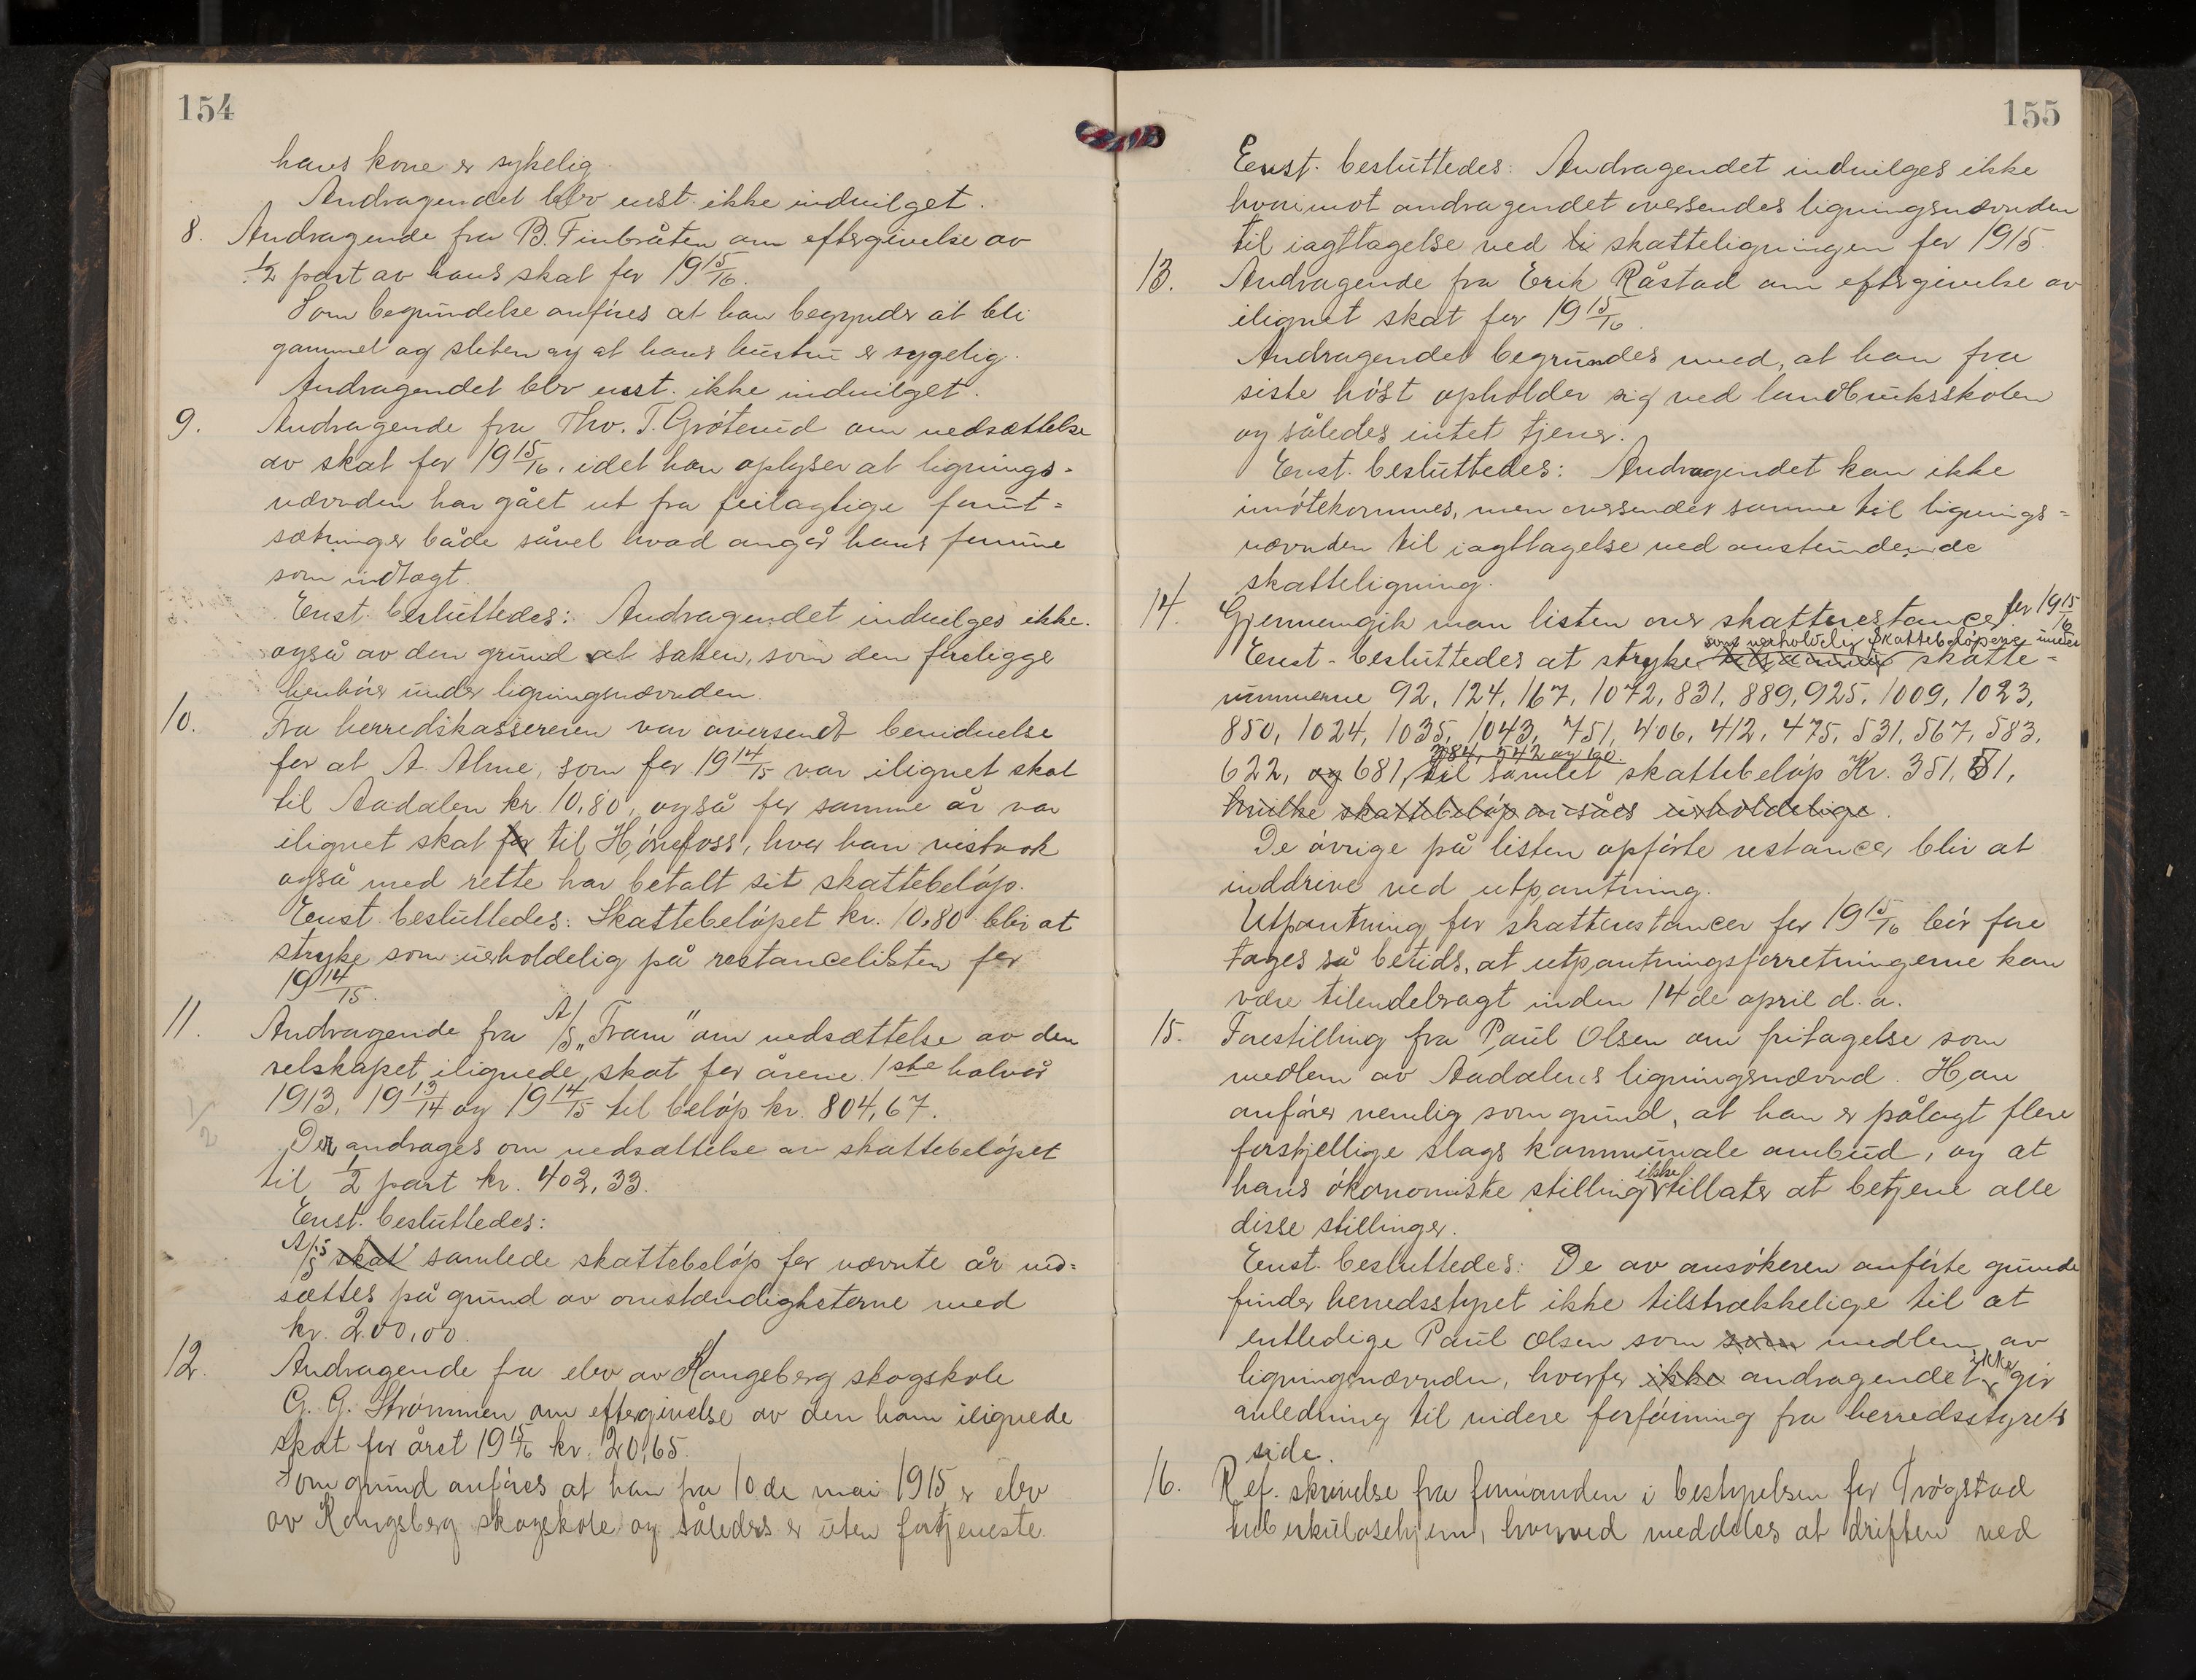 154
hans kone er sykelig.
Andragendet blev enst. ikke indvilget.
8. Andragende fra B. Finbråten om eftergivelse av
1/2 part av hans skat for 19 15/16.
Som begrundelse anføres at han begynder at bli
gammel og sliten og at hans hustru er sygelig.
Andragendet blev enst. ikke indvilget.
9. Andragende fra Thv. T. Grøterud om nedsættelse
av skat for 19 15/16, idet han oplyser at lignings-
nævnden har gået ut fra feilagtige forut-
sætninger både såvel hvad angår hans formue
som indtægt.
Enst. besluttedes: Andragendet indvilges ikke.
også av den grund at saken, som den foreligge
henhører under ligningsnævnden.
10. Fra herredskassereren var oversendt bevidnelse
for at A. Alme, som for 19 14/15 var ilignet skat
til Aadalen kr. 10,80, også for samme år var
ilignet skat for til Hønefoss, hvor han vistnok
også med rette har betalt sit skattebeløp.
Enst. besluttedes: Skattebeløpet kr. 10,80 blir at
stryke som uerholdelig på restancelisten for
19 14/15.
11. Andragende fra A/S „Fram" om nedsættelse av den
selskapet ilignede skat for årene 1ste halvår
1913, 19 13/14 og 19 14/15 til beløp kr. 804,67.
Der andrages om nedsættelse av skattebeløpet
til 1/2 part kr. 402,33.
1/2
Enst. besluttedes:
A/S's skat samlede skattebeløp for nævnte år ned-
sættes på grund av omstændigheterne med
kr. 200,00.
12. Andragende fra elev av Kongsberg skogskole
G. G. Strømmen om eftergivelse av den ham ilignede
skat for året 19 15/16 kr. 20,65.
Som grund anføres at han fra 10de mai 1915 er elev
av Kongsberg skogskole og således er uten fortjeneste.
155
Enst. besluttedes: Andragendet indvilges ikke
hvorimot andragendet oversendes ligningsnævnden
til iagttagelse ved li skatteligningen for 1915
13. Andragende fra Erik Råstad om eftergivelse av
ilignet skat for 19 15/16.
Andragendet begrundes med, at han fra
siste høst opholder sig ved landbruksskolen
og således intet tjener.
Enst. besluttedes: Andragendet kan ikke
imøtekommes, men oversender samme til lignings-
nævnden til iagttagelse ved anstundende
skatteligning.
14. Gjennemgik man listen over skatterestancer for 19 15/16
som uerholdelig skattebeløpene under
Enst. besluttedes at stryke skatte-
nummerne 92, 124, 167, 1072, 831, 889, 925, 1009, 1023,
850, 1024, 1035, 1043, 751, 406, 412, 475, 531, 567, 583,
384, 542 og 160.
622, og 681, til samlet skattebeløp Kr. 351,51,
hvilke skattebeløp ansåes uerholdelige.
De øvrige på listen opførte restancer blir at
inddrive ved utpantning.
Utpantning for skatterestancer for 19 15/16 bør fore
tages så betids, at utpantningsforretningerne kan
være tilendebragt inden 14de april d. a.
15. Forestilling fra Paul Olsen om fritagelse som
medlem av Aadalens ligningsnævnd. Han
anfører nemlig som grund, at han er pålagt flere
forskjellige slags kommunale ombud, og at
hans økonomiske stilling ikke tillater at betjene alle
disse stillinger.
Enst. besluttedes: De av ansøkeren anførte grunde
finder herredsstyret ikke tilstrækkelige til at
entledige Paul Olsen som som medlem av
ligningsnævnden, hvorfor ikke andragendet ikke gir
anledning til videre forføining fra herredsstyrets
side.
16. Ref. skrivelse fra formanden i bestyrelsen for Trøgstad
tuberkulosehjem, hvorved meddeles at driften ved